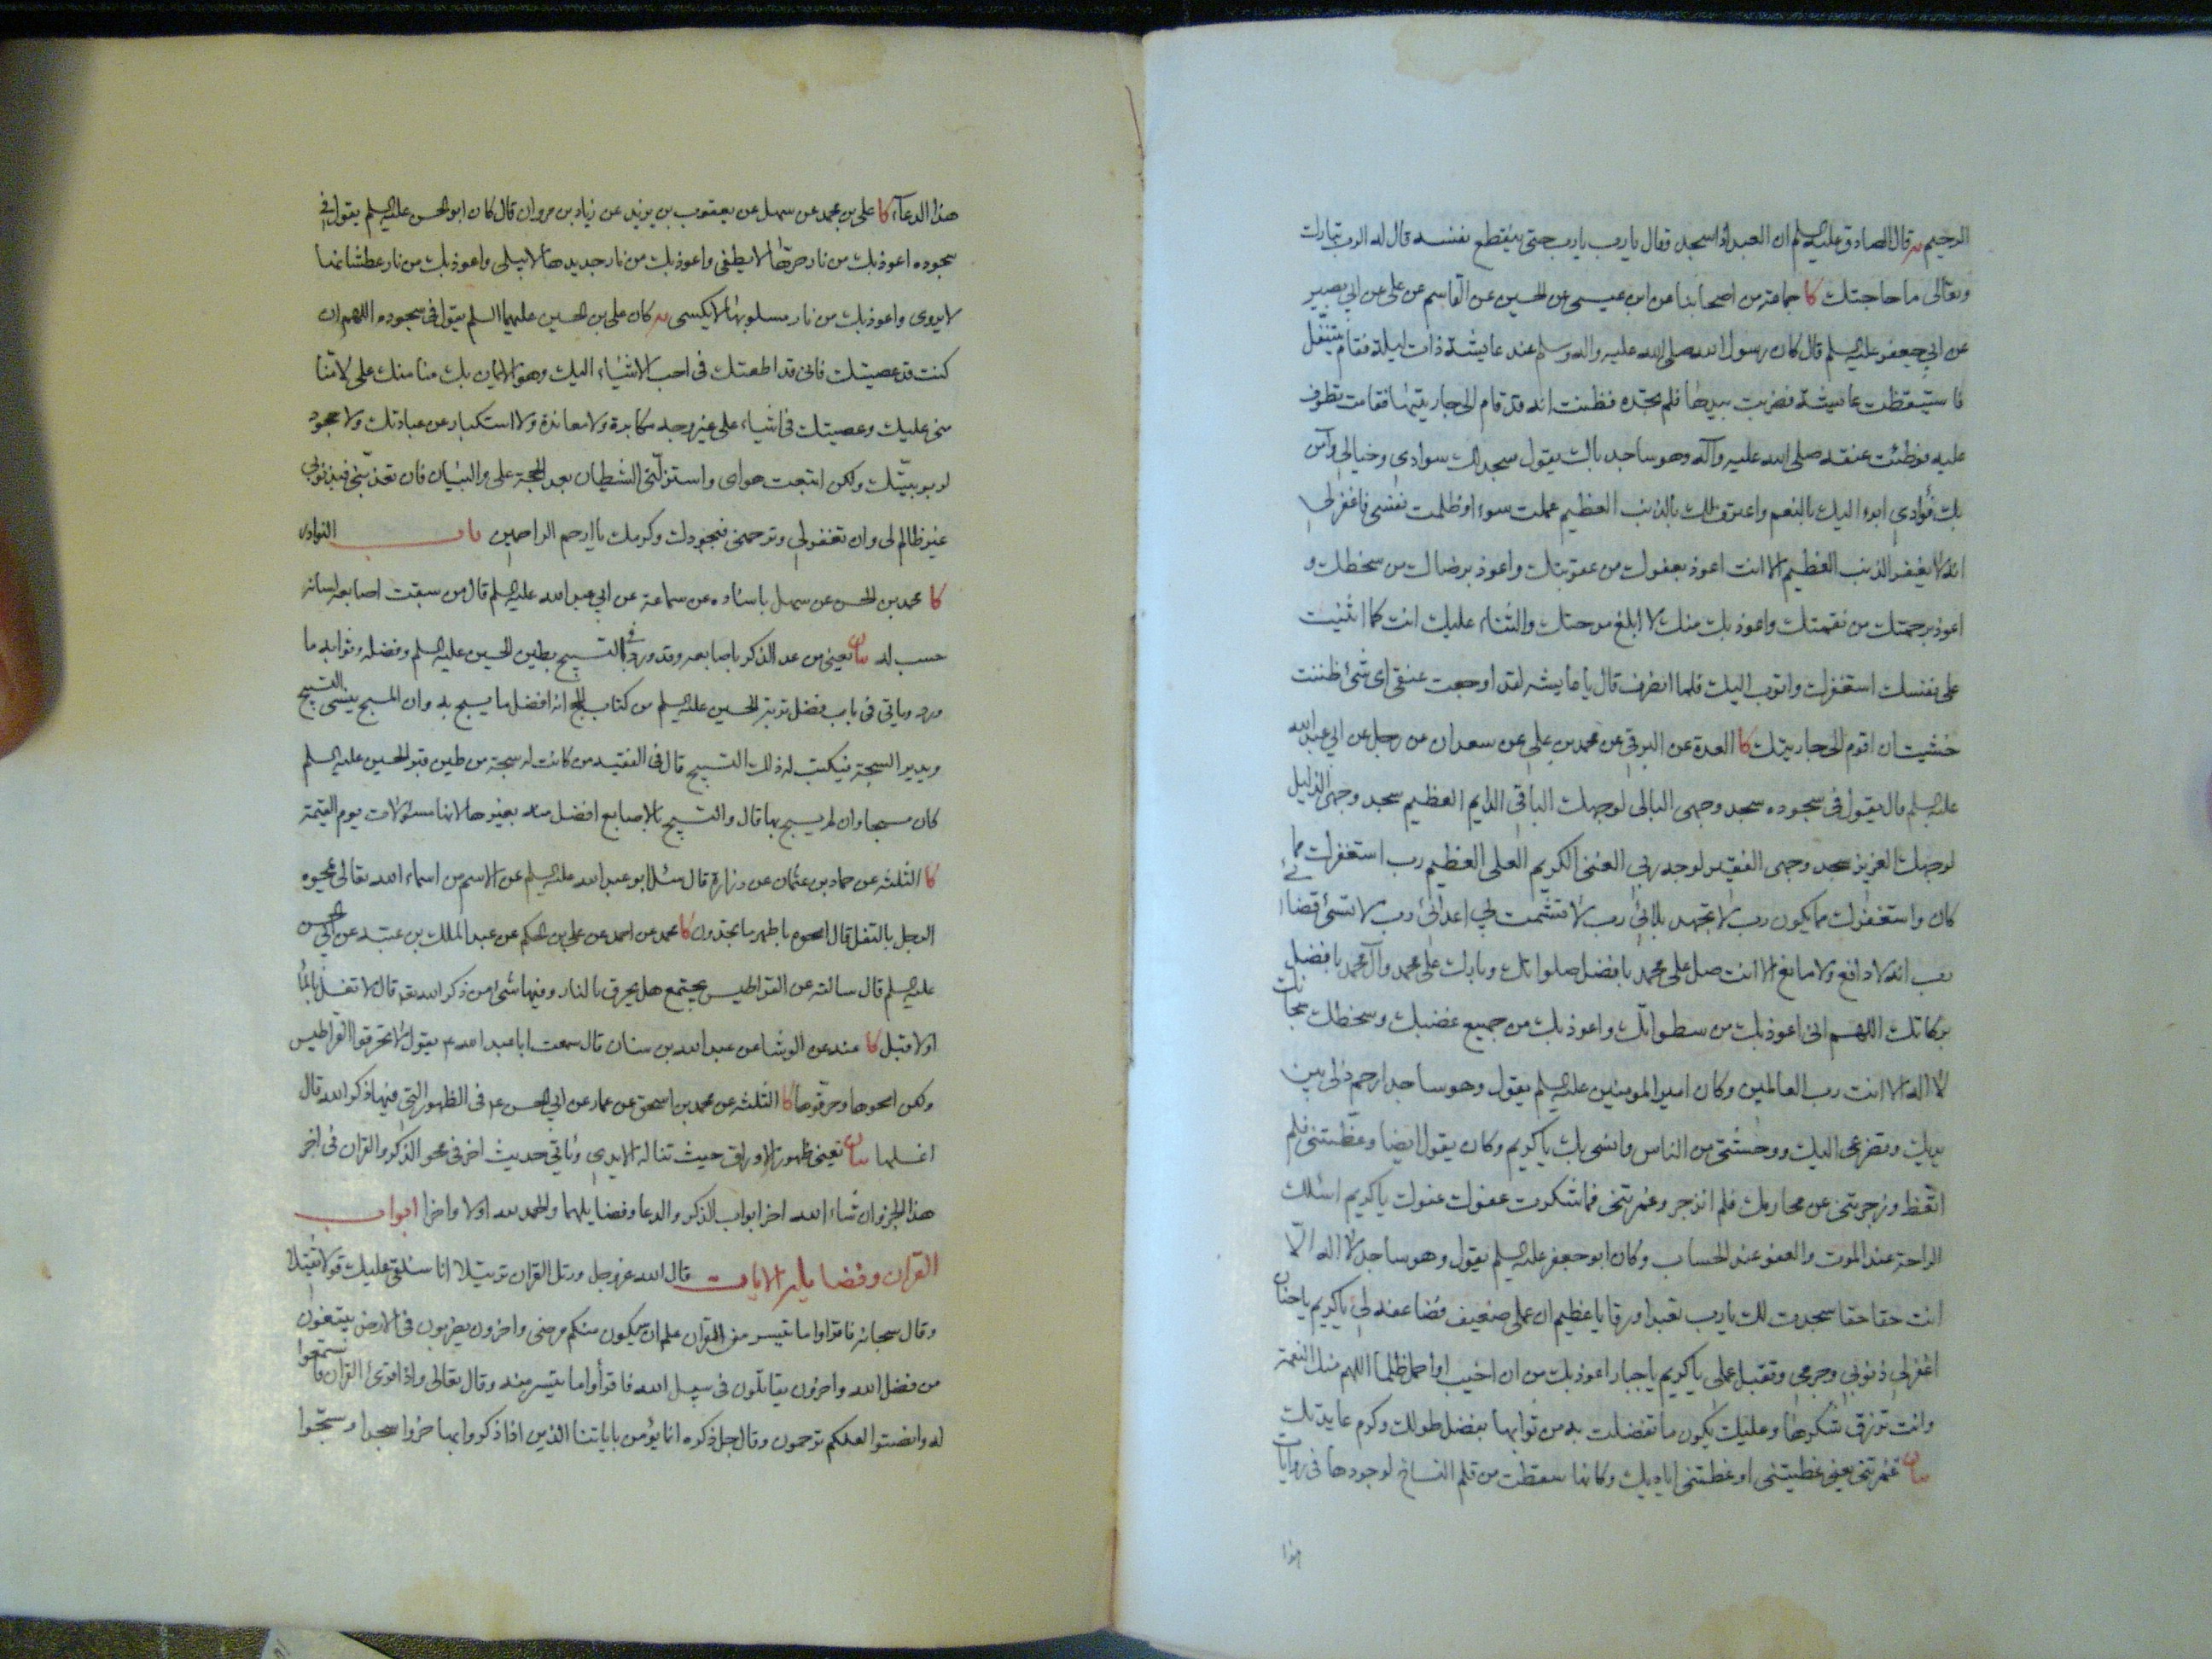 الرحيم يه قال الصادق عليه السلم ان العبد اذا سجد وقال يا رب يا رب حتى ينقطع نفسه قال له الرب تبارك
وتعالى ما حاجتك كا جماعة من اصحابنا عن ابن عيسى عن الحسين عن القاسم عن على عن ابي بصير
عن ابي جعفر عليه السلم قال كان رسول الله صلى الله عليه واله وسلم عند عايشة ذات ليلة فقام يتنفل
فاستيقظت عايشة فضربت بيدها فلم تجده فظنت انه قد قام الى جاريتها فقامت تطوف
عليه فوطئت عنقه صلى الله عليه وآله وهو ساجد باك يقول سجد لك سوادى وخيالي وآمن
بك فؤادي ابوء اليك بالنعم واعترف لك بالذنب العظيم عملت سوءا وظلمت نفسى فاغفر لي
انه لا يغفر الذنب العظيم الا انت اعوذ بعفوك من عقوبتك واعوذ برضاك من سخطك و
اعوذ برحمتك من نقمتك واعوذ بك منك لا ابلغ مدحتك والثناء عليك انت كما اثنيت
على نفسك استغفرك واتوب اليك فلما انصرف قال يا عايشه لقد اوجعت عنقى اى شئ ظننت
خشيت ان اقوم الى جاريتك كا العدة عن البرقي عن محمد بن علي عن سعدان عن رجل عن ابي عبد الله
عليه السلم قال يقول في سجوده سجد وجهى البالى لوجهك الباقي الدايم العظيم سجد وجهى الذليل
لوجهك العزيز سجد وجهى الفقير لوجه ربي الغنى الكريم العلى العظيم رب استغفرك مما
كان واستغفرك مما يكون رب لا تجهد بلائي رب لا تشمت بي اعدائي رب لا تسئ قضائي
رب انه لا دافع ولا مانع الا انت صل على محمد بافضل صلواتك وبارك على محمد وآل محمد بافضل
بركاتك اللهم انى اعوذ بك من سطواتك واعوذ بك من جميع غضبك وسخطك سبحانك
لا اله الا انت رب العالمين وكان امير المومنين عليه السلم يقول وهو ساجد ارحم ذلي بين
يديك وتضرعى اليك ووحشتى من الناس وانسى بك يا كريم وكان يقول ايضا وعظتنى فلم
اتعظ وزجرتني عن محارمك فلم انزجر وغمرتنى فما شكرت عفوك عفوك يا كريم اسئلك
الراحة عند الموت والعفو عند الحساب وكان ابو جعفر عليه السلم يقول وهو ساجد لا اله الا
انت حقا حقا سجدت لك يا رب تعبدا ورقا يا عظيم ان عملى ضعيف فضاعفه لي يا كريم يا حنان
اغفر لي ذنوبي وجرمي وتقبل عملى يا كريم يا جبار اعوذ بك من ان اخيب او احمل ظلما اللهم منك النعمة
وانت ترزق شكرها وعليك يكون ما تفضلت به من ثوابها بفضل طولك وكرم عايدتك
بيان غمرتنى يعني غطيتنى او غطتنى اياديك وكانها سقطت من قلم النساخ لوجودها في روايات
هذا
هذا الدعآء كا على بن محمد عن سهل عن يعقوب بن يزيد عن زياد بن مروان قال كان ابو الحسن عليه السلم يقول في
سجوده اعوذ بك من نار حرها لا يطفى واعوذ بك من نار جديدها لا يبلى واعوذ بك من نار عطشانها
لا يروى واعوذ بك من نار مسلوبها لا يكسى يه كان على بن الحسين عليهما السلم يقول في سجوده اللهم ان
كنت قد عصيتك فانى قد اطعتك في احب الاشياء اليك وهو الايمان بك منا منك على لا منا
منى عليك وعصيتك في اشياء على غير وجه مكابرة ولا معاندة ولا استكبار عن عبادتك ولا جحود
لربوبيتك ولكن اتبعت هواى واستزلني الشيطان بعد الحجة على والبيان فان تعذبني فبذنوبي
غير ظالم لى وان تغفر لي وترحمني فبجودك وكرمك يا ارحم الراحمين باب النوادر
كا محمد بن الحسن عن سهل باسناده عن سماعة عن ابي عبد الله عليه السلم قال من سبقت اصابعه لسانه
حسب له بيان يعني من عد الذكر باصابعه وقد ورد في التسبيح بطين الحسين عليه السلم وفضله وثوابه ما
ورد وياتي في باب فضل تربة الحسين عليه السلم من كتاب الحج انه افضل ما يسبح به وان المسبح ينسى التسبيح
ويدير السبحة فيكتب له ذلك التسبيح قال في الفقيه من كانت له سبحة من طين قبر الحسين عليه السلم
كان مسبحا وان لم يسبح بها قال والتسبيح بالاصابع افضل منه بغيرها لانها مسئولات يوم القيمة
كا الثلثة عن حماد بن عثمان عن زرارة قال سئل ابو عبد الله عليه السلم عن الاسم من اسماء الله تعالى يمحوه
الرجل بالتفل قال امحوه باطهر ما تجدون كا محمد عن احمد عن علي بن الحكم عن عبد الملك بن عتبة عن ابي الحسن
عليه السلم قال سالته عن القراطيس يجتمع هل يحرق بالنار وفيها شئ من ذكر الله تعه قال لا تغسل بالماء
اولا قبل كا عنه عن الوشا عن عبد الله بن سنان قال سمعت ابا عبد الله ع يقول لا تحرقوا القراطيس
ولكن امحوها وحرقوها كا الثلثة عن محمد بن اسحق عن عمار عن ابي الحسن ع في الظهور التي فيها ذكر الله قال
اغسلها بيان يعني ظهور الاوراق حيث تناله الايدي وياتي حديث اخر في محو الذكر والقران في اخر
هذا الجزء ان شاء الله اخر ابواب الذكر والدعا وفضايلهما والحمد لله اولا واخرا ابواب
القرآن وفضايله الايات قال الله عز وجل ورتل القران ترتيلا انا سنلقي عليك قولا ثقيلا
وقال سبحانه فاقراوا ما تيسر من القرآن علم ان سيكون منكم مرضى واخرون يضربون في الارض يبتغون
من فضل الله واخرون يقاتلون في سبيل الله فاقرأوا ما تيسر منه وقال تعالى واذا قرئ القران فاستمعوا
له وانصتوا لعلكم ترحمون وقال جل ذكره انما يؤمن باياتنا الذين اذا ذكروا بها خروا سجدا وسبحوا